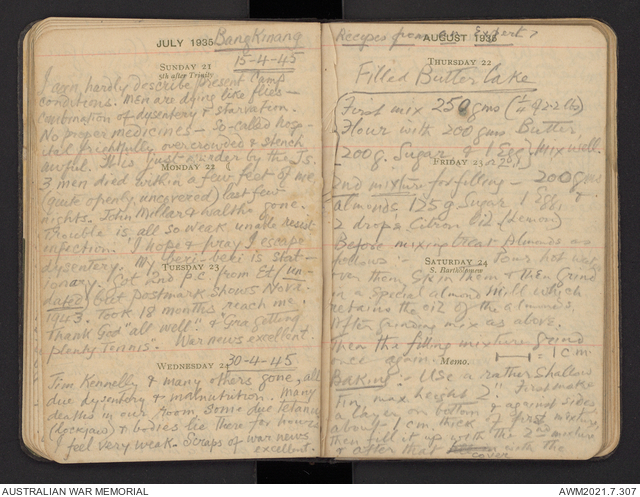 JULY 1935 Bangkinang
SUNDAY 21 15-4-45
5th after Trinity
I can hardly describe present Camp
conditions. Men are dying like flies -
combination of dysentery & starvation.
No proper medicines - so-called hosp-
ital frightfully overcrowded & stench
awful. It is just murder by the Js.
MONDAY 22
3 men died within a few feet of me
(quite openly, uncovered) last few
nights. John Millar & Walth gone.
Trouble is all so weak, unable resist
infection. I hope & pray I escape
dysentery. My beri-beri is stat-
ionary. Got 2nd P.C. from Et (un-
TUESDAY 23
dated) but postmark shows Nov.
1943. Took 18 months reach me.
Thank God "all well"! & Gra getting
plenty tennis. War news excellent.
WEDNESDAY 24 30-4-45
Jim Kennelly & many others gone, all
due dysentery & malnutrition. Many
deaths in our room, some due tetanus
(lockjaw) & bodies lie there for hours
I feel very weak. Scraps of war news
excellent.
Recepes from an Expert,
AUGUST 1935
THURSDAY 22
Filled Butter Cake
First mix 250 gms (
Flour with 200 gms Butter,
200 g. Sugar & 1 Egg, Mix well.
FRIDAY 23
2nd mixture for filling - 200 gms
almonds 125 g Sugar 1 Egg,
2 drops Citron Oil (Lemon)
Before mixing treat Almonds as
follows :- Pour hot water
SATURDAY 24
S. Bartholomew
over them & skin them & then Grind
in a special almond mill which
retains the oil of the almonds.
After grinding mix as above.
Then the filling mixture grind
once again. = 1 cm
Memo.
Baking :- Use a rather shallow
Tin, max height 2". First make
a layer on bottom & against sides
about 1 cm. thick of first mixture,
then fill it up with the 2nd mixture
& after that cover with the
AUSTRALIAN WAR MEMORIAL AWM2021.7.307